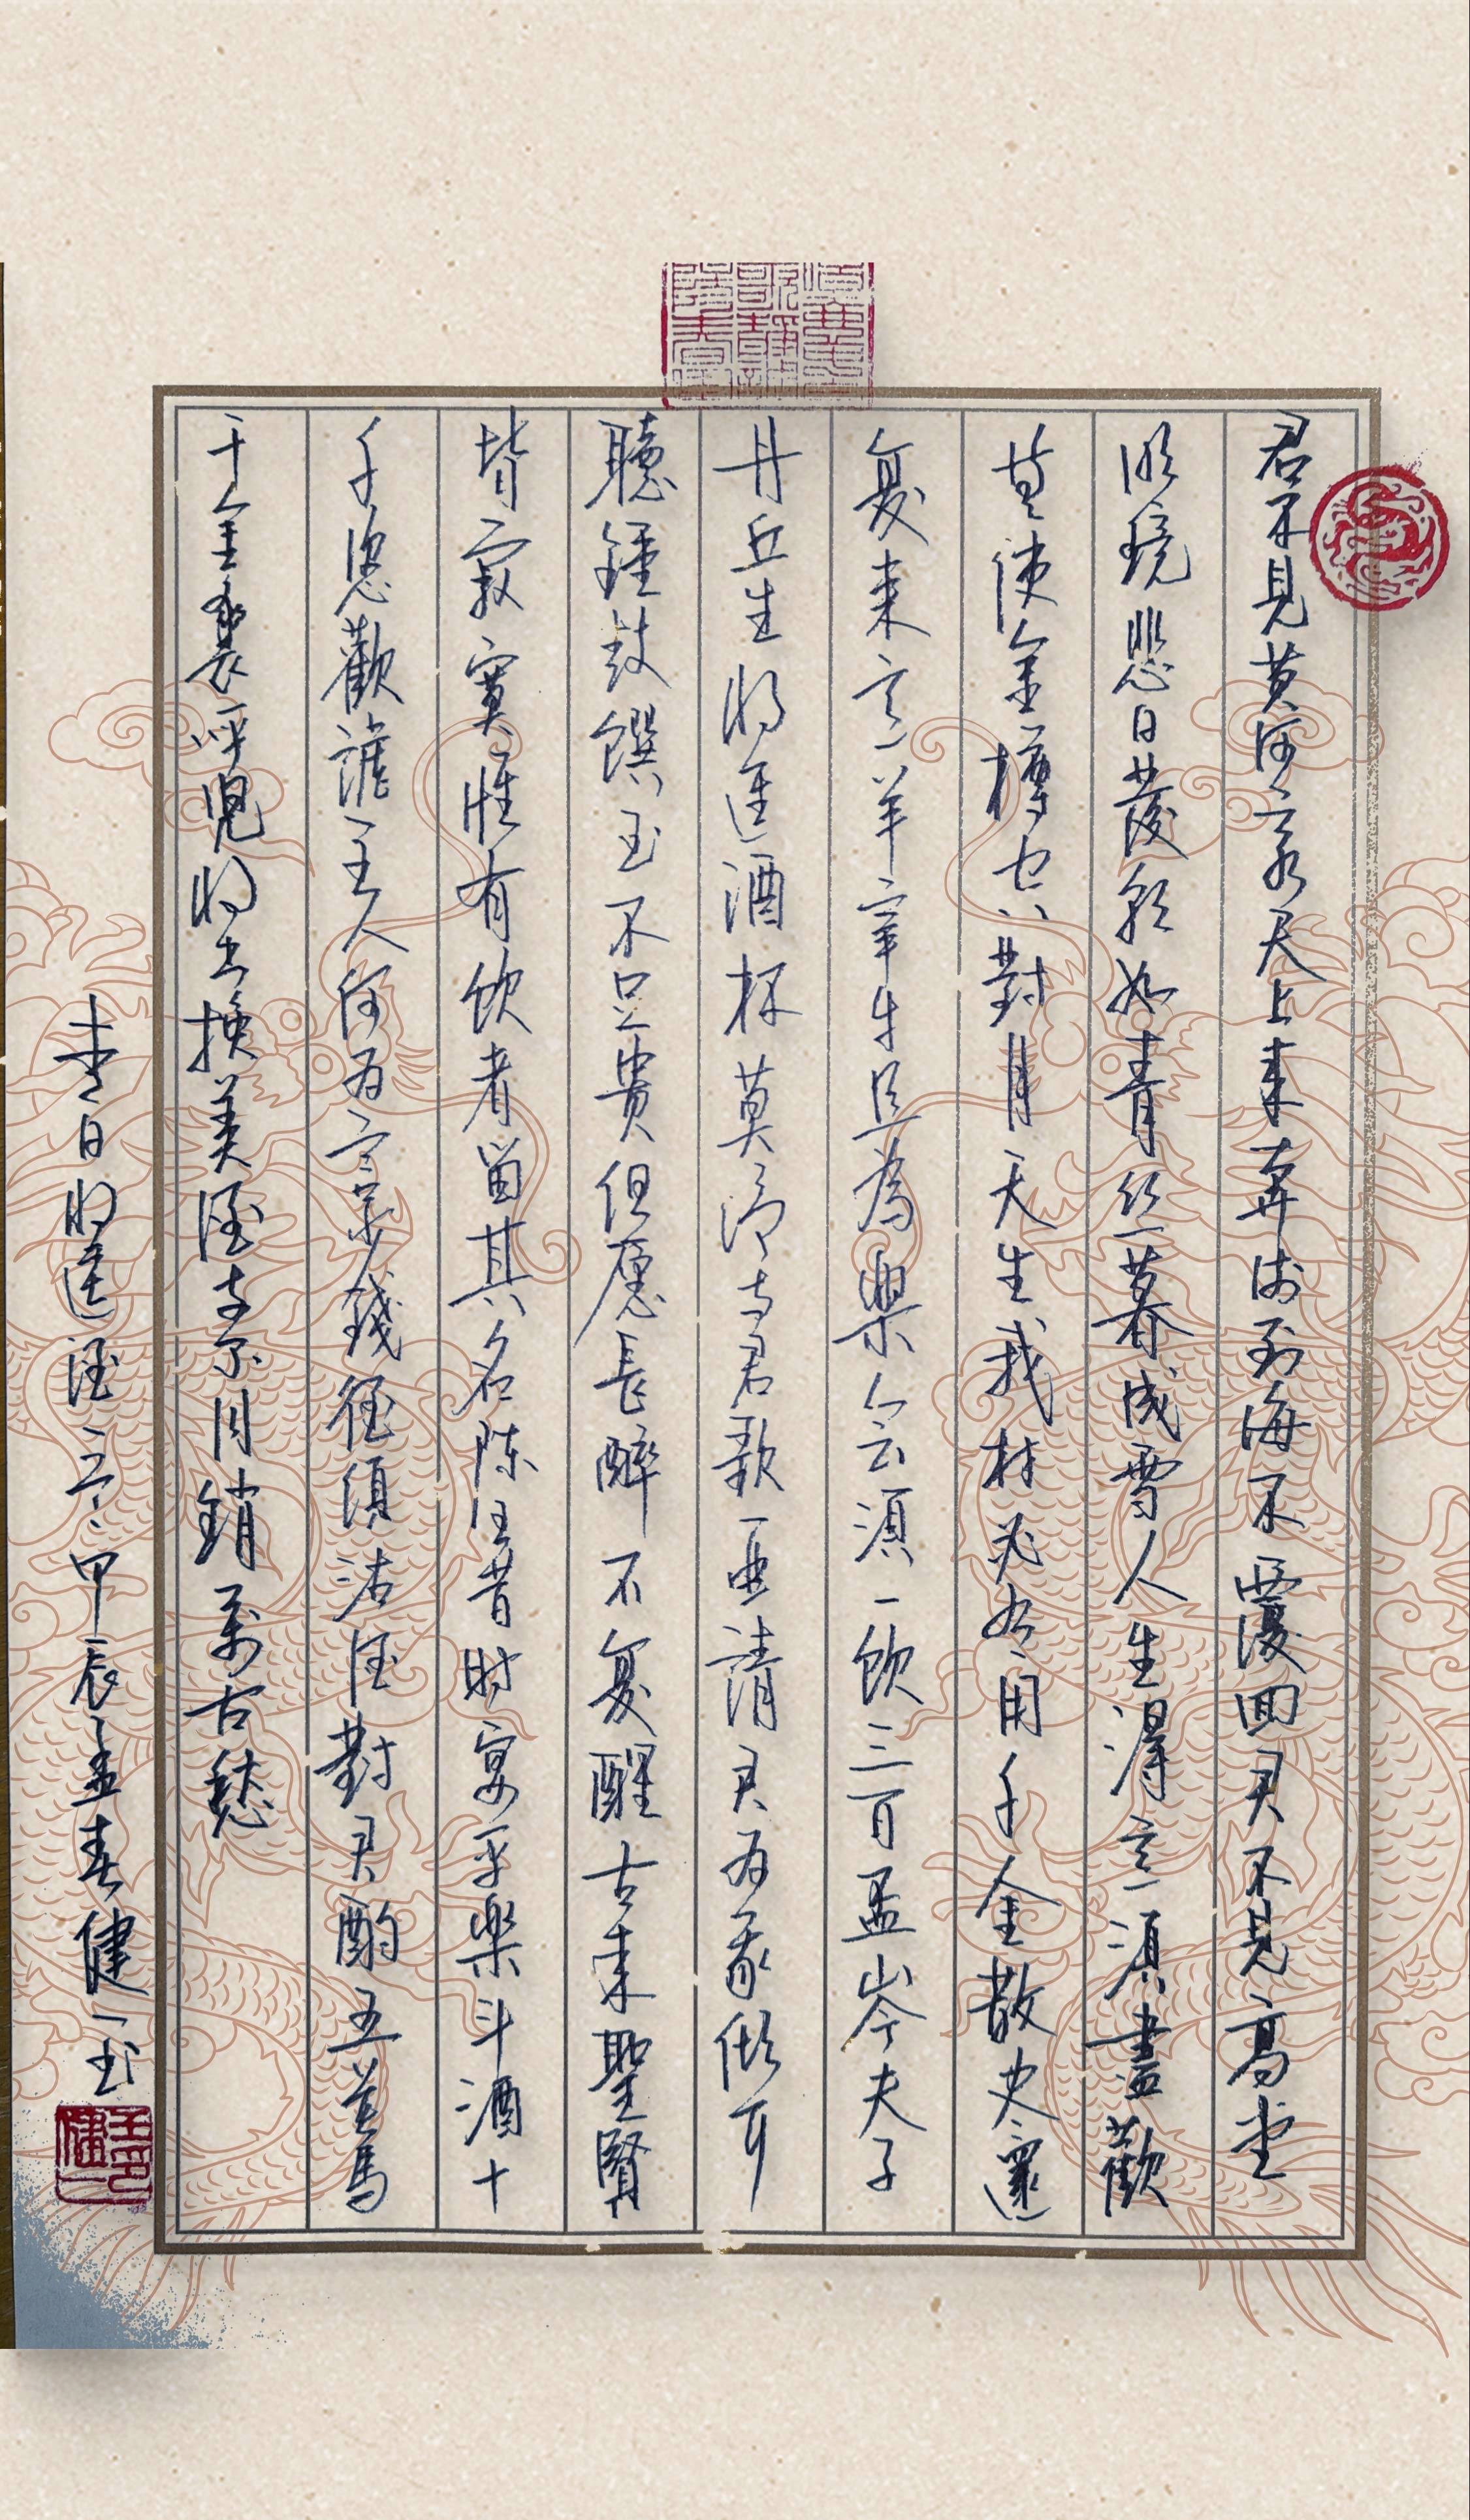 君不見黄河之水天上来奔流到海不覆回君不見高堂
明鏡悲白髮朝如青丝暮成雪人生得意須盡歡
莫使金樽空對月天生我材必有用千金散尽還
复来烹羊宰牛且為樂会須一飲三百盃岑夫子
丹丘生将進酒杯莫停与君歌一曲請君为我傾耳
聽鐘鼓饌玉不足貴但愿長醉不复醒古来聖賢
皆寂寞惟有飲者留其名陈王昔时宴平樂斗酒十
千恣歡謔主人何为言少錢徑須沽酒對君酌五花馬
千金裘呼兒将出換美酒与尔同銷萬古愁
李白将進酒 甲辰孟春健一书